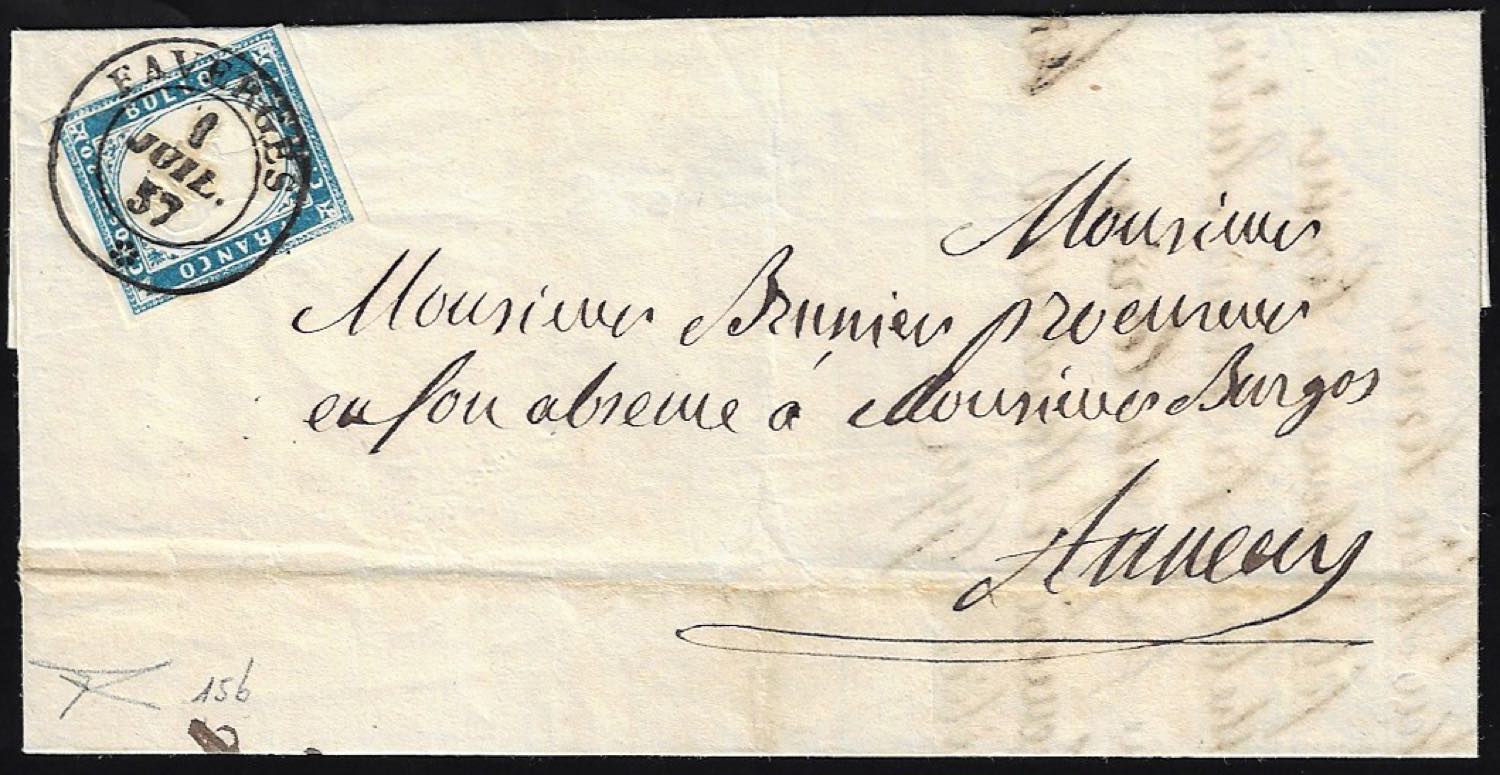 FAVERGES
1
JUIL.
57
BOLLO
FRANCO
Monsieur
Monsieur Brunier procureur
en son absence à Monsieur Burgos
Annecy
15b